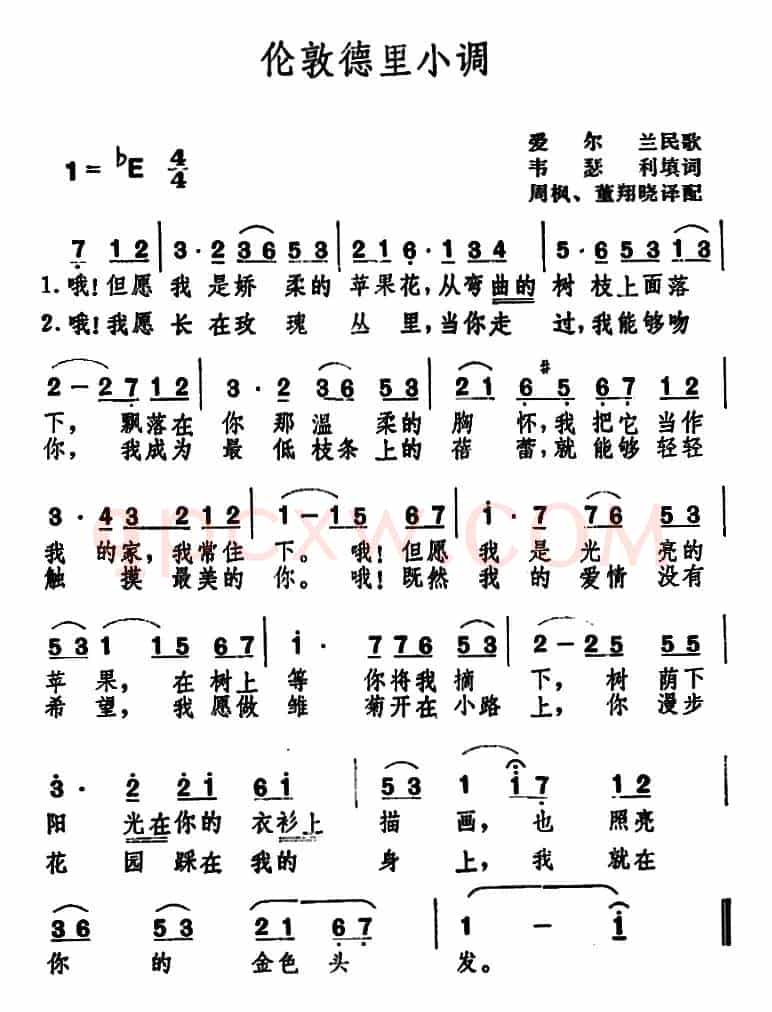 伦敦德里小调
爱尔兰民歌
1=♭E 4/4
韦瑟利填词
周枫、董翔晓译配
7 1 2 | 3 · 2 3 6 5 3 | 2 1 6 · 1 3 4 | 5 · 6 5 3 1 3 |
1.哦!但愿 我 是娇 柔的 苹果花,从弯曲的 树 枝上面落
2.哦!我愿 长 在玫 瑰 丛 里,当你走 过,我能够吻
2 – 2 7 1 2 | 3 · 2 3 6 5 3 | 2 1 6 #5 6 7 1 2 |
下, 飘落在 你 那温 柔的 胸 怀,我把它 当作
你, 我成为 最 低枝条 上的 蓓 蕾,就能够 轻轻
3 · 4 3 2 2 1 2 | 1 – 1 5 6 7 | 1 · 7 7 6 5 3 |
我 的家,我常住 下。哦!但愿 我 是光 亮的
触 摸 最美的 你。哦!既然 我 的 爱情 没有
5 3 1 1 5 6 7 | i · 7 7 6 5 3 | 2 – 2 5 5 5 |
苹 果, 在树上 等 你将我 摘 下, 树 荫下
希 望, 我愿做 雏 菊开在 小路 上, 你 漫步
3 · 2 2 i 6 i | 5 3 1 i 7 1 2 |
阳 光在你的 衣衫上 描 画, 也 照亮
花 园 踩在 我的 身 上, 我 就在
3 6 5 3 2 1 6 7 | 1 – i ‖
你 的 金色头 发。
gpcxw.com